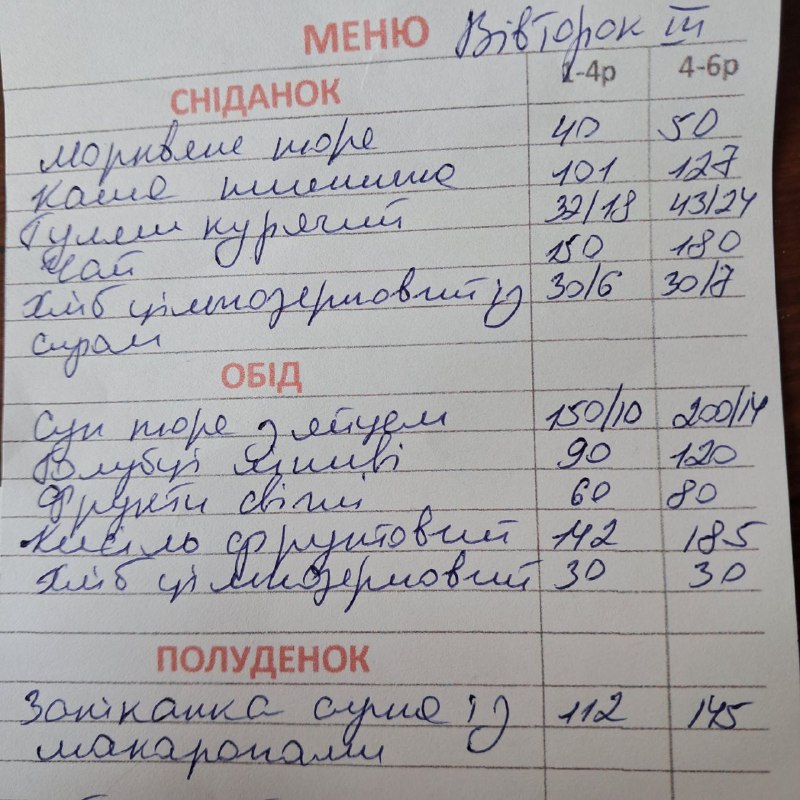 МЕНЮ Вівторок III
1-4р 4-6р
СНІДАНОК
Морквяне пюре 40 50
Каша пшенична 101 127
Гуляш курячий 32/18 43/24
Чай 150 180
Хліб цільнозерновий із 30/6 30/7
сиром
ОБІД
Суп пюре з яйцем 150/10 200/14
Голубці ліниві 90 120
Фрукти свіжі 60 80
Кисіль фруктовий 142 185
Хліб цільнозерновий 30 30
ПОЛУДЕНОК
Запіканка сирна із 112 145
макаронами